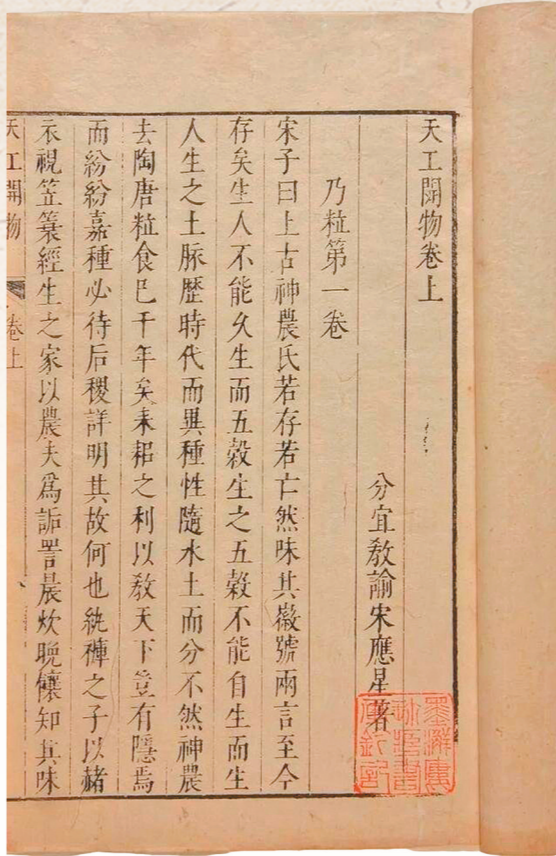 天工開物卷上
分宜教諭宋應星著
乃粒第一卷
宋子曰上古神農氏若存若亡然味其徽號兩言至今
存矣生人不能久生而五穀生之五穀不能自生而生
人生之土脈歷時代而異種性隨水土而分不然神農
去陶唐粒食已千年矣耒耜之利以教天下豈有隱焉
而紛紛嘉種必待后稷詳明其故何也紈褲之子以赭
衣視笠簑經生之家以農夫為詬詈晨炊晚饟知其味
天工開物 卷上